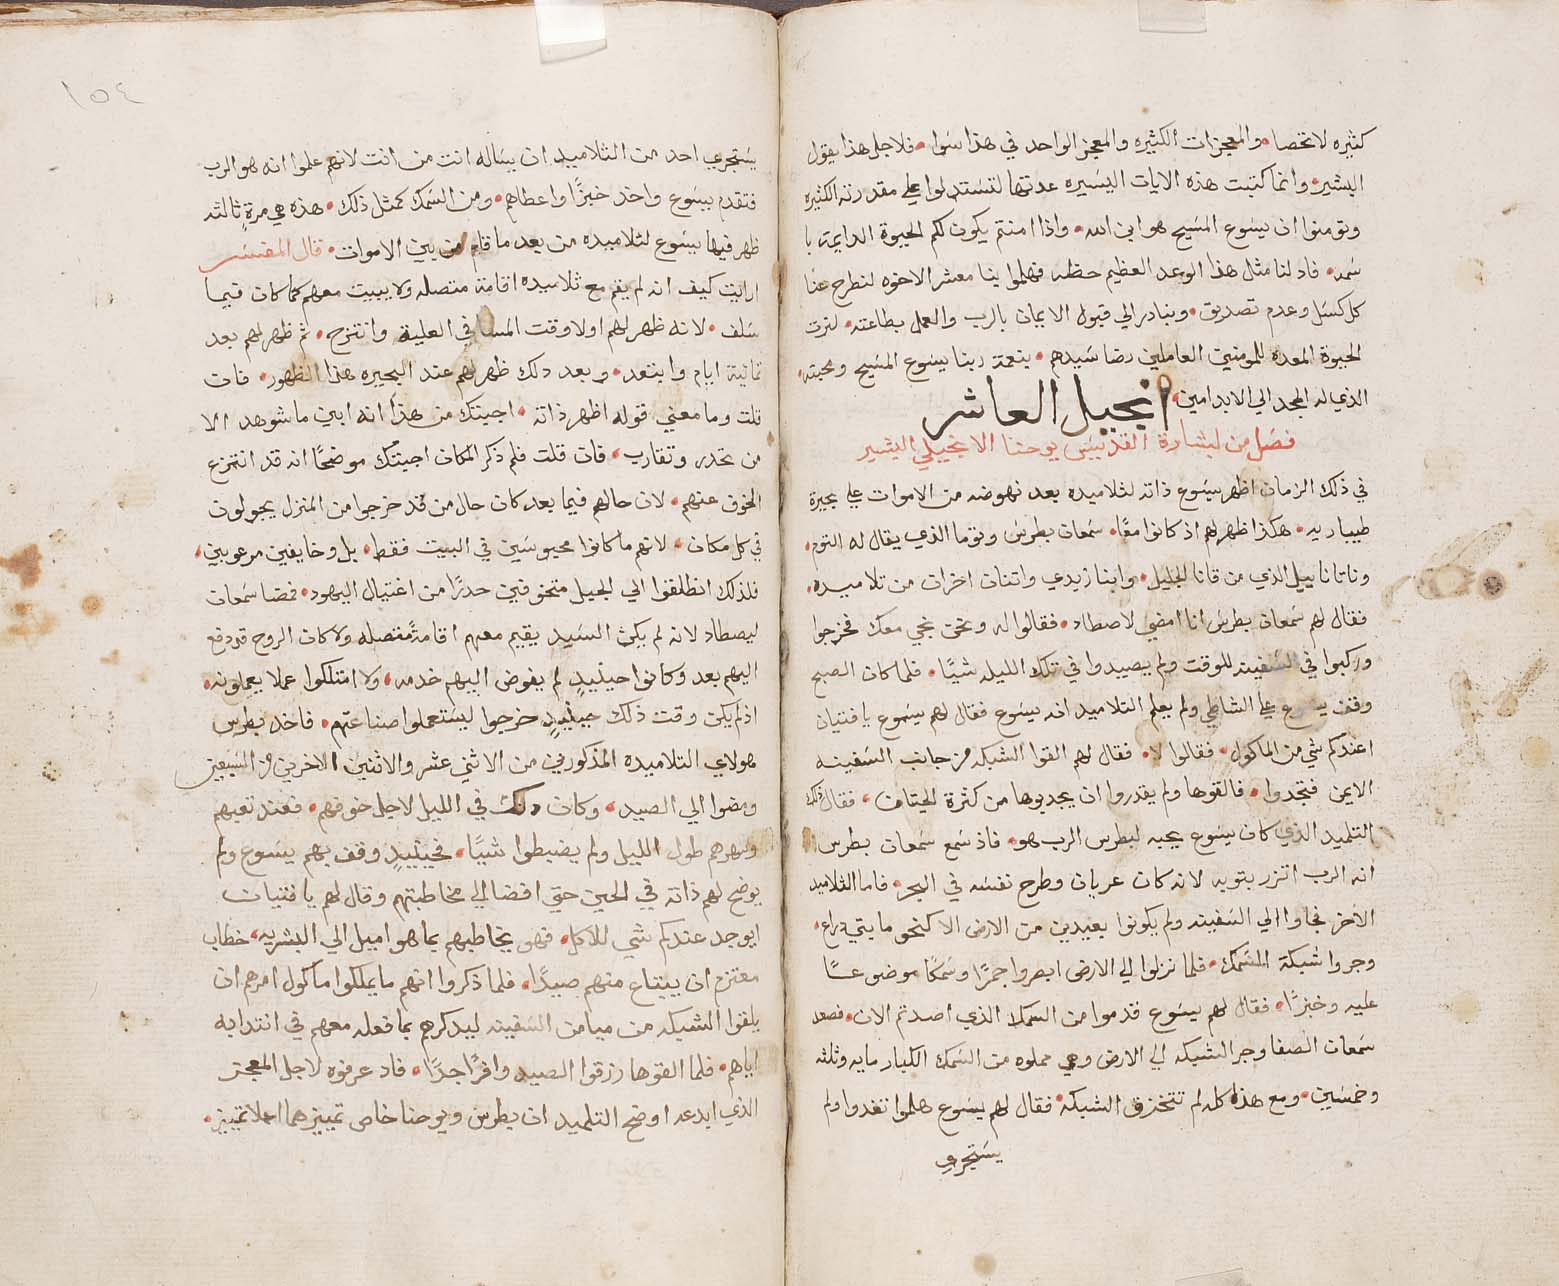 كثيره لا تحصا والمعجزات الكثيره والمعجز الواحد في هذا سوا فلاجل هذا يقول
البشير وانما كتبت هذه الايات اليسيره عدتها لتستدلوا علي مقدرته الكثيره
وتومنوا ان يسوع المسيح هو ابن الله واذا امنتم يكون لكم الحيوة الدايمه با
سمه فاد لنا مثل هذا الوعد العظيم حظه فهلموا بنا معشر الاخوه لنطرح عنا
كل كسل وعدم تصديق ونبادر الي قبول الايمان بالرب والعمل بطاعته لنرث
الحيوة المعده للمومنين العاملين رضا سيدهم بنعمة ربنا يسوع المسيح ومحبته
الذي له المجد الي الابد امين انجيل العاشر
فصل من بشارة القديس يوحنا الانجيلي البشير
في ذلك الزمان اظهر يسوع ذاته لتلاميده بعد نهوضه من الاموات علي بحيرة
طيباريه هكذا ظهر لهم اذ كانوا معًا سمعان بطرس وتوما الذي يقال له التوم
وناتاناييل الذي من قانا الجليل وابنا زبدي واتنان اخران من تلاميده
فقال لهم سمعان بطرس انا امضي لاصطاد فقالوا له ونحن نجي معك فخرجوا
وركبوا في السفينه للوقت ولم يصيدوا في تلك الليله شيًا فلما كان الصبح
وقف يسوع علي الشاطي ولم يعلم التلاميد انه يسوع فقال لهم يسوع يا فتيان
اعندكم شي من الماكول فقالوا لا فقال لهم القوا الشبكه من جانب السفينه
الايمن فتجدوا فالقوها ولم يقدروا ان يجدبوها من كثرة الحيتان فقال ذلك
التلميد الذي كان يسوع يحبه لبطرس الرب هو فاذ سمع سمعان بطرس
انه الرب اتزر بتوبه لانه كان عريان وطرح نفسه في البحر فاما التلاميد
الاخر فجاوا الي السفينه ولم يكونوا بعيدين من الارض الا كنحو مايتي دراع
وجروا شبكة السمك فلما نزلوا الي الارض ابصروا جمرًا وسمكًا موضوعًا
عليه وخبزًا فقال لهم يسوع قدموا من السمك الذي اصدتم الان فصعد
سمعان الصفا وجر الشبكه الي الارض وهي مملوه من السمك الكبار مايه وثلثه
وخمسين ومع هذا كله لم تتخزق الشبكه فقال لهم يسوع هلموا تغدوا ولم
يستجري
١٥٤
يستجري احد من التلاميد ان يساله انت من انت لانهم علموا انه هو الرب
فتقدم يسوع واخذ خبزًا واعطاهم ومن السمك كمثل ذلك هذه هي مرةٍ ثالثه
ظهر فيها يسوع لتلاميده من بعد ما قام من بين الاموات قال المفسر
ارايت كيف انه لم يقم مع تلاميده اقامة متصله ولا يبيت معهم كما كان فيما
سلف لانه ظهر لهم اولا وقت المسا في العلية وانتزح ثم ظهر لهم بعد
تمانية ايام وابتعد وبعد دلك ظهر لهم عند البحيره هذا الظهور فان
قلت وما معني قوله اظهر ذاته اجبتك من هذا انه ابين ما شوهد الا
من تحدر وتقارب فان قلت فلم ذكر المكان اجبتك موضحًا انه قد انتزع
الخوف عنهم لان حالهم فيما بعد كان حال من قد خرجوا من المنزل يجولون
في كل مكان لانهم ما كانوا محبوسين في البيت فقط بل وخايفين مرعوبين
فلذلك انطلقوا الي الجليل متخوفين حدرًا من اغتيال اليهود فمضا سمعان
ليصطاد لانه لم يكن السيد يقيم معهم اقامةً متصله ولا كان الروح قد دفع
اليهم بعد وكانوا حينيدٍ لم يفوض اليهم خدمه ولا امتلكوا عملا يعملونه
اذ لم يكن وقت ذلك حينيدٍ خرجوا ليستعملوا صناعتهم فاخد بطرس
هولاي التلاميده المذكورين من الاثني عشر والاثنين الاخرين من السبعين
ومضوا الي الصيد وكان دلك في الليل لاجل خوفهم فعند تعبهم
وسهرهم طول الليل ولم يضبطوا شيًا فحينيدٍ وقف بهم يسوع ولم
يوضح لهم ذاته في الحين حتي افضا الي مخاطبتهم وقال لهم يا فتيان
ايوجد عندكم شي للاكل فهو يخاطبهم بما هو اميل الي البشريه خطاب
معتزم ان يبتاع منهم صيدًا فلما ذكروا انهم ما يملكوا ماكول امرهم ان
يلقوا الشبكه من ميامن السفينه ليدكرهم بما فعله معهم في انتدابه
اياهم فلما القوها رزقوا الصيد وافرًا جدًا فاد عرفوه لاجل المعجز
الذي ابدعه اوضح التلميد ان بطرس ويوحنا خاص تمييزهما اعلا تمييز